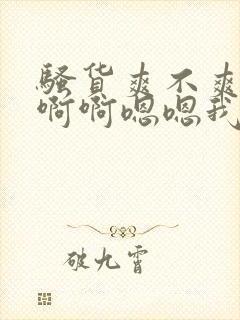 骚货爽不爽
啊啊嗯嗯我
破九霄